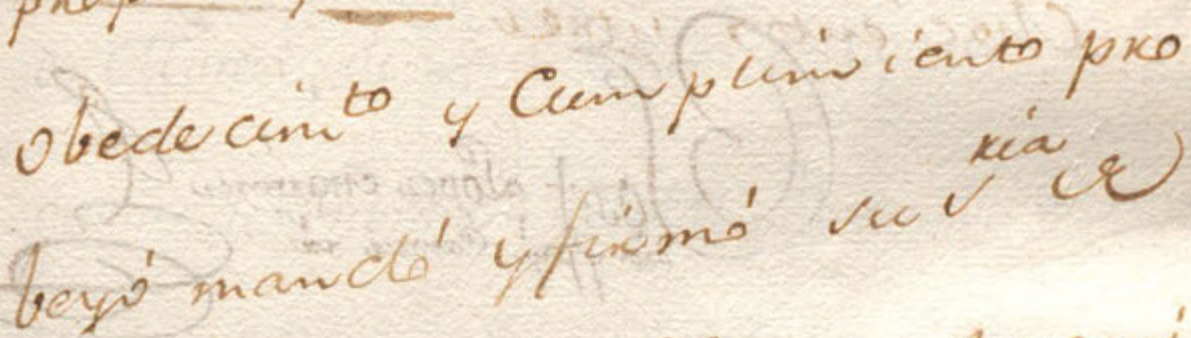 obedecimto y Cumplimiento pro
beyó mandó y firmó su Sria